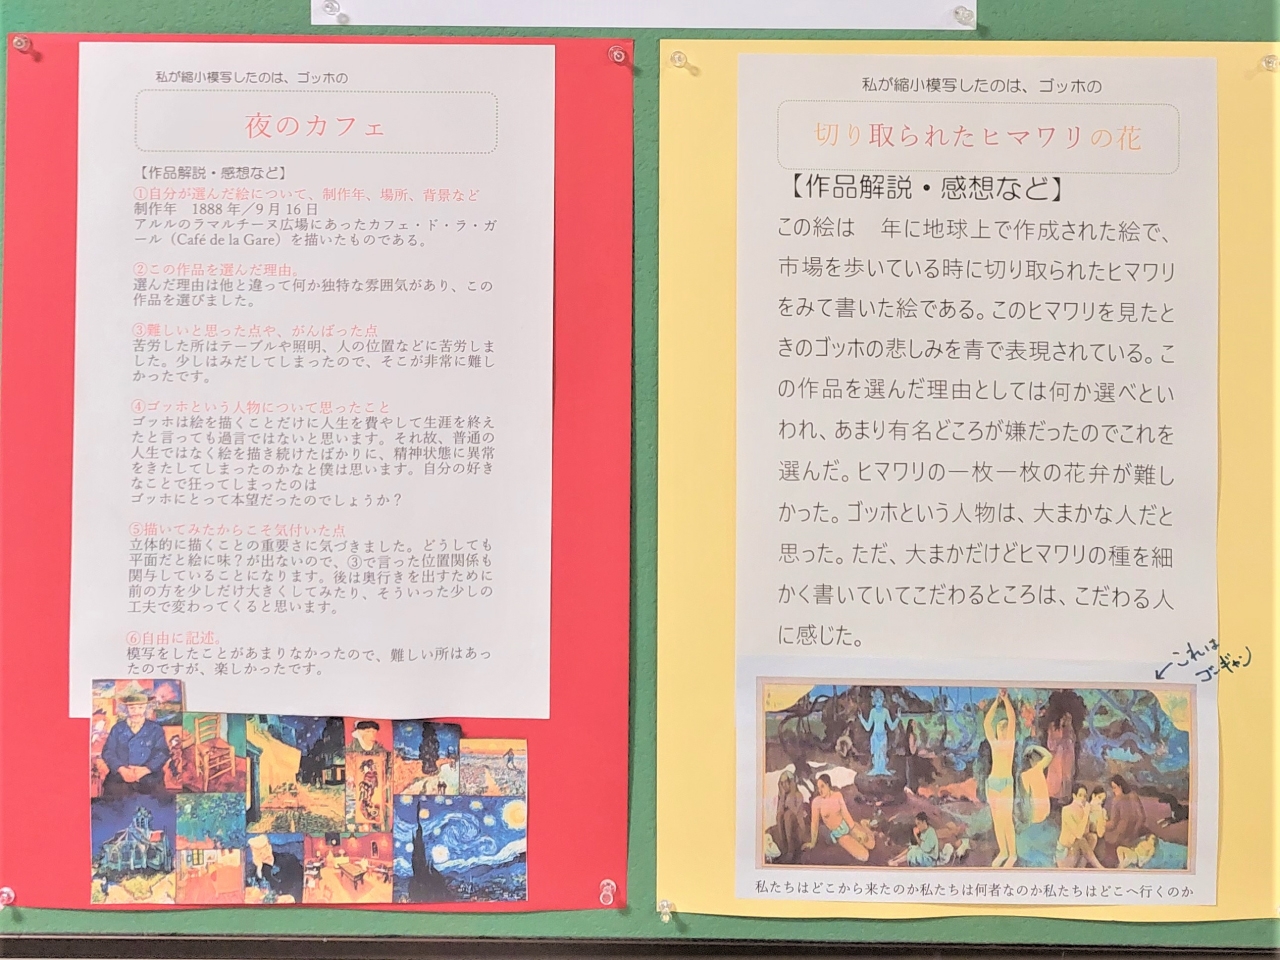 私が縮小模写したのは、ゴッホの
夜のカフェ
【作品解説・感想など】
①自分が選んだ絵について、制作年、場所、背景など
制作年　1888 年／9 月 16 日
アルルのラマルチーヌ広場にあったカフェ・ド・ラ・ガ
ール（Café de la Gare）を描いたものである。
②この作品を選んだ理由。
選んだ理由は他と違って何か独特な雰囲気があり、この
作品を選びました。
③難しいと思った点や、がんばった点
苦労した所はテーブルや照明、人の位置などに苦労しま
した。少しはみだしてしまったので、そこが非常に難し
かったです。
④ゴッホという人物について思ったこと
ゴッホは絵を描くことだけに人生を費やして生涯を終え
たと言っても過言ではないと思います。それ故、普通の
人生ではなく絵を描き続けたばかりに、精神状態に異常
をきたしてしまったのかなと僕は思います。自分の好き
なことで狂ってしまったのは
ゴッホにとって本望だったのでしょうか？
⑤描いてみたからこそ気付いた点
立体的に描くことの重要さに気づきました。どうしても
平面だと絵に味？が出ないので、③で言った位置関係も
関与していることになります。後は奥行きを出すために
前の方を少しだけ大きくしてみたり、そういった少しの
工夫で変わってくると思います。
⑥自由に記述。
模写をしたことがあまりなかったので、難しい所はあっ
たのですが、楽しかったです。
私が縮小模写したのは、ゴッホの
切り取られたヒマワリの花
【作品解説・感想など】
この絵は　年に地球上で作成された絵で、
市場を歩いている時に切り取られたヒマワリ
をみて書いた絵である。このヒマワリを見たと
きのゴッホの悲しみを青で表現されている。こ
の作品を選んだ理由としては何か選べとい
われ、あまり有名どころが嫌だったのでこれを
選んだ。ヒマワリの一枚一枚の花弁が難し
かった。ゴッホという人物は、大まかな人だと
思った。ただ、大まかだけどヒマワリの種を細
かく書いていてこだわるところは、こだわる人
に感じた。
←これは
ゴーギャン
私たちはどこから来たのか私たちは何者なのか私たちはどこへ行くのか